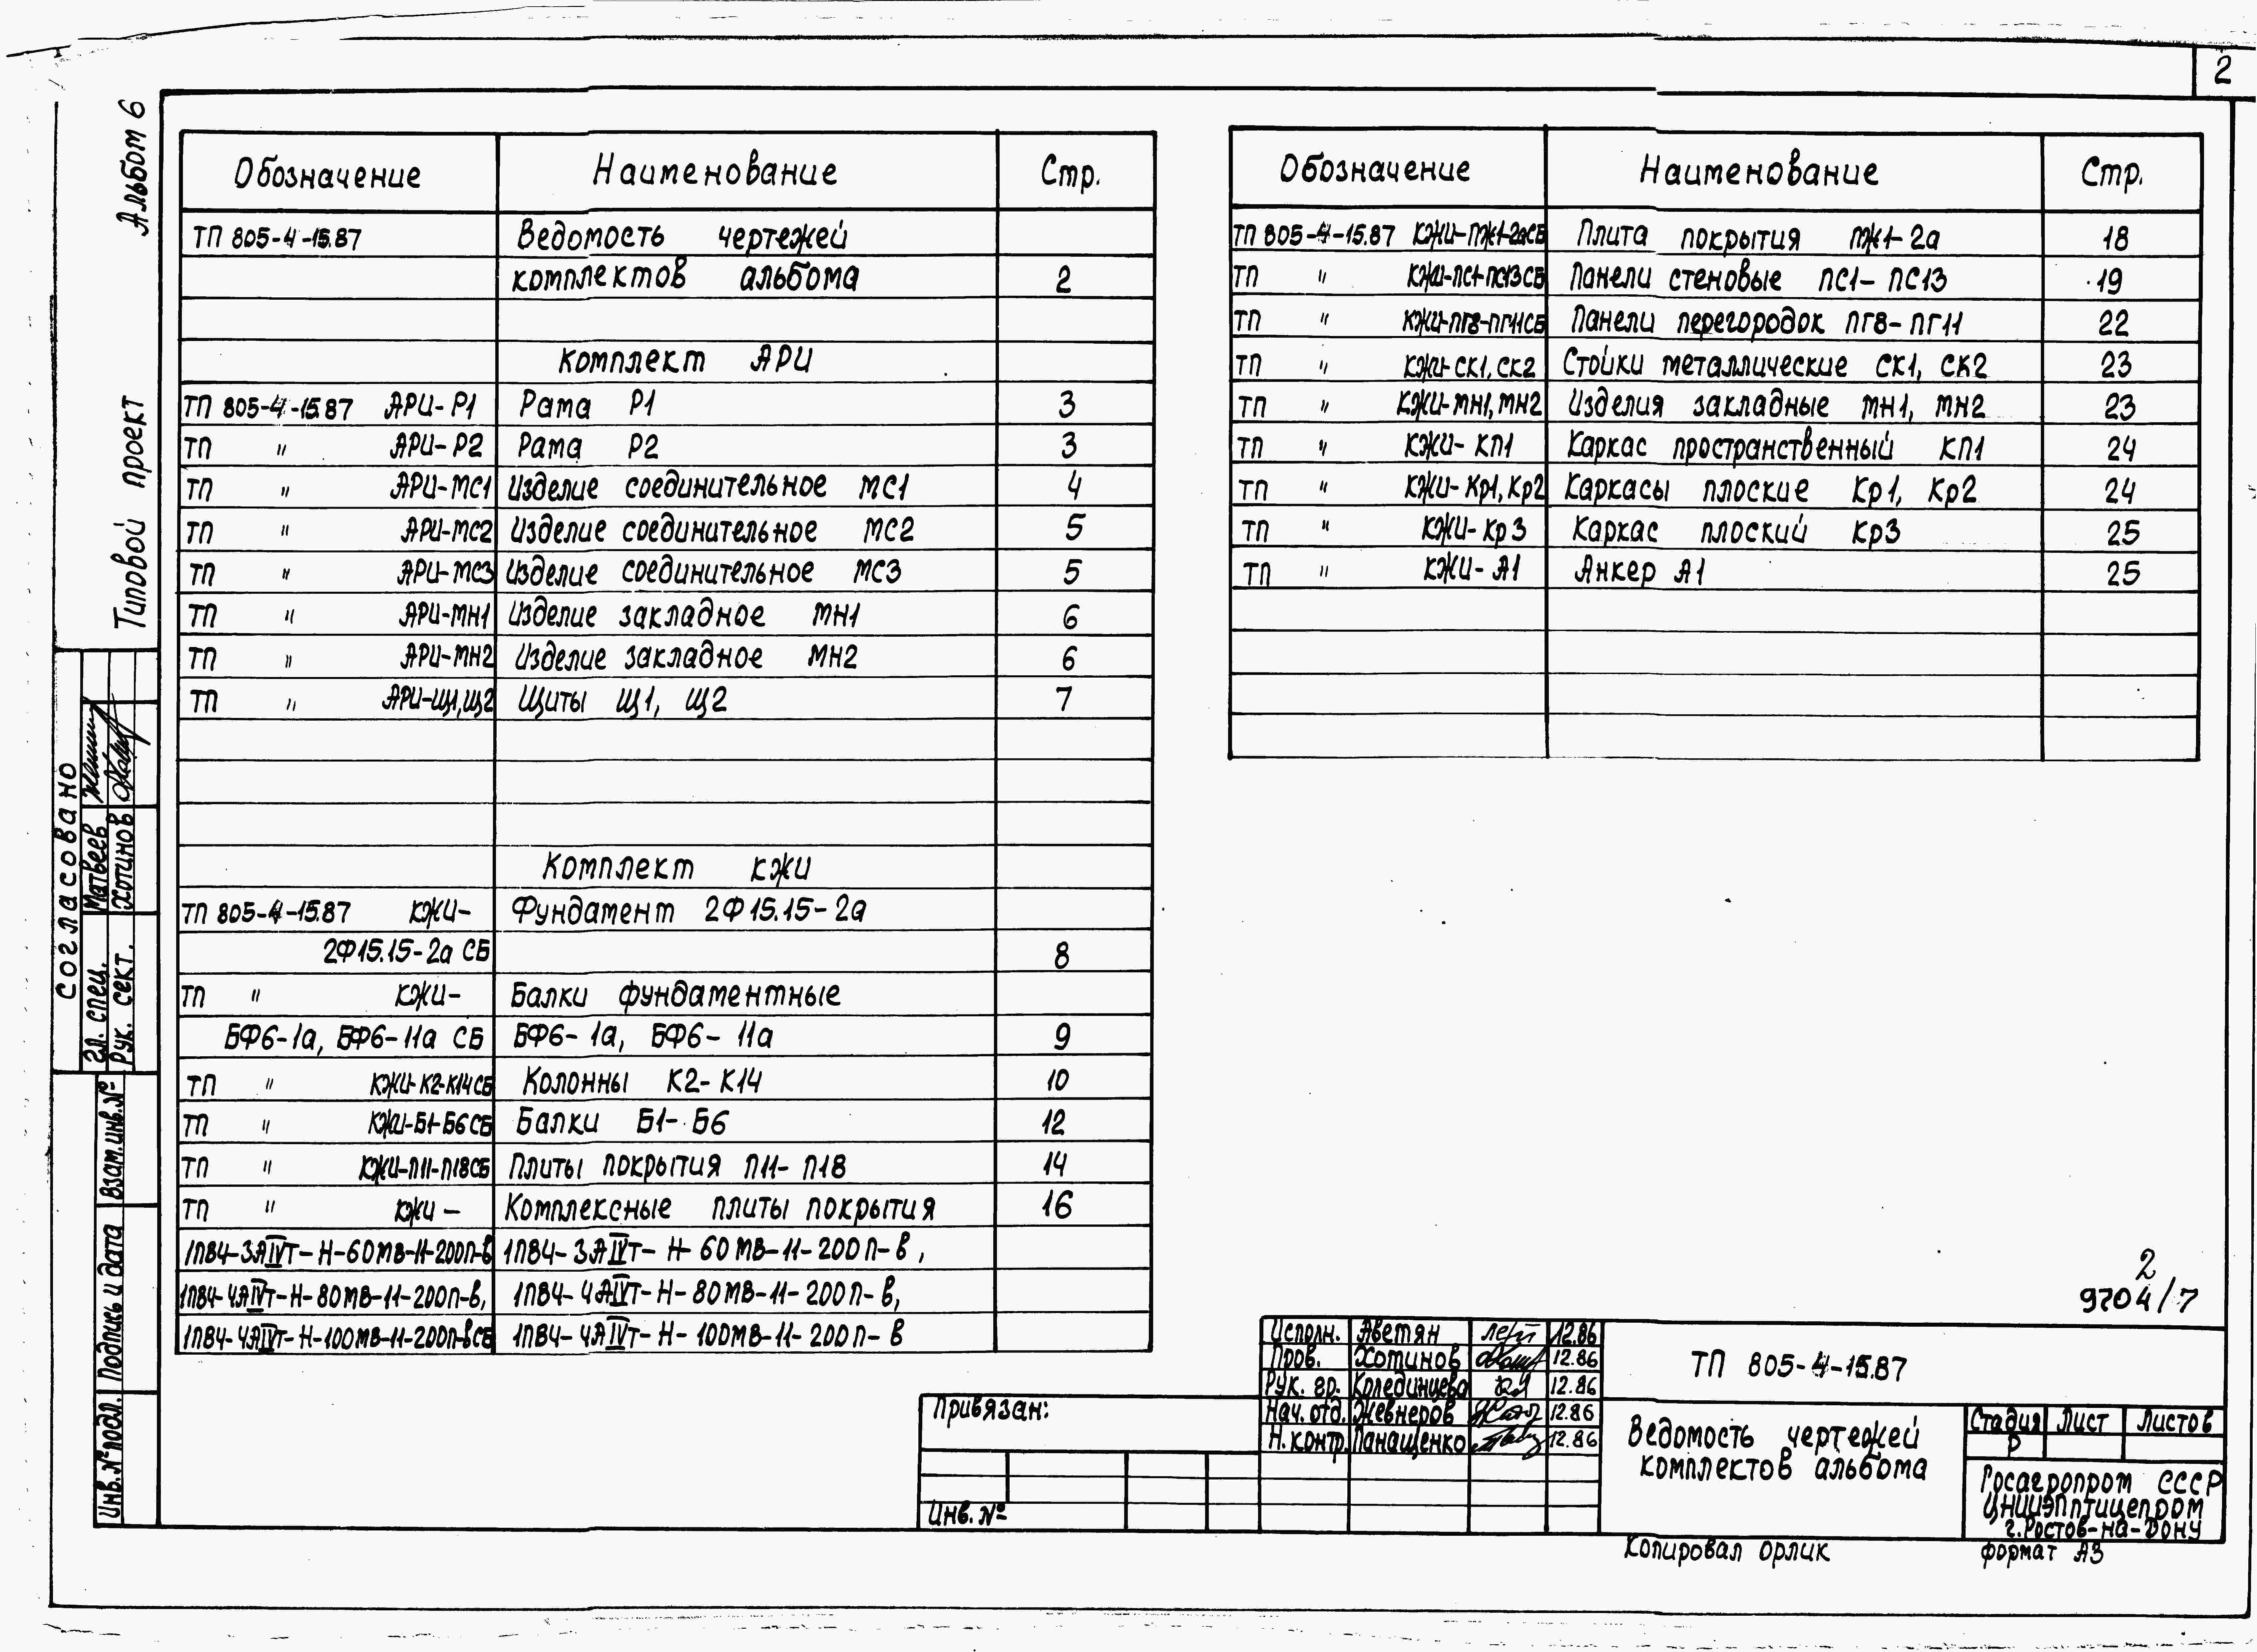 2
Альбом 6
Типовой проект
Обозначение Наименование Стр.
ТП 805-4-15.87 Ведомость чертежей
комплектов альбома 2
Комплект АРИ
ТП 805-4-15.87 АРИ-Р1 Рама Р1 3
ТП " АРИ-Р2 Рама Р2 3
ТП " АРИ-МС1 Изделие соединительное МС1 4
ТП " АРИ-МС2 Изделие соединительное МС2 5
ТП " АРИ-МС3 Изделие соединительное МС3 5
ТП " АРИ-МН1 Изделие закладное МН1 6
ТП " АРИ-МН2 Изделие закладное МН2 6
ТП " АРИ-Щ1,Щ2 Щиты Щ1, Щ2 7
Комплект КЖИ
ТП 805-4-15.87 КЖИ- Фундамент 2Ф15.15-2а
2Ф15.15-2а СБ 8
ТП " КЖИ- Балки фундаментные
БФ6-1а, БФ6-11а СБ БФ6-1а, БФ6-11а 9
ТП " КЖИ-К2-К14СБ Колонны К2-К14 10
ТП " КЖИ-Б1-Б6СБ Балки Б1-Б6 12
ТП " КЖИ-П11-П18СБ Плиты покрытия П11-П18 14
ТП " КЖИ- Комплексные плиты покрытия 16
1ПВ4-3АIVТ-Н-60МВ-11-200П-в 1ПВ4-3АIVТ-Н-60МВ-11-200П-в,
1ПВ4-4АIVТ-Н-80МВ-11-200П-в, 1ПВ4-4АIVТ-Н-80МВ-11-200П-в,
1ПВ4-4АIVТ-Н-100МВ-11-200П-вСБ 1ПВ4-4АIVТ-Н-100МВ-11-200П-в
Обозначение Наименование Стр.
ТП 805-4-15.87 КЖИ-ПЖ1-2аСБ Плита покрытия ПЖ1-2а 18
ТП " КЖИ-ПС1-ПС13СБ Панели стеновые ПС1-ПС13 19
ТП " КЖИ-ПГ8-ПГ11СБ Панели перегородок ПГ8-ПГ11 22
ТП " КЖИ-СК1,СК2 Стойки металлические СК1, СК2 23
ТП " КЖИ-МН1,МН2 Изделия закладные МН1, МН2 23
ТП " КЖИ-КП1 Каркас пространственный КП1 24
ТП " КЖИ-Кр1,Кр2 Каркасы плоские Кр1, Кр2 24
ТП " КЖИ-Кр3 Каркас плоский Кр3 25
ТП " КЖИ-А1 Анкер А1 25
Согласовано
Гл. спец. Матвеев
Рук. сект. Хотинов
Взам.инв.№
Подпись и дата
Инв.№подл.
2
9704/7
Исполн. Аветян 12.86
Пров. Хотинов 12.86
Рук. гр. Колединцева 12.86
Нач. отд. Жевнеров 12.86
Н.контр. Панащенко 12.86
ТП 805-4-15.87
Ведомость чертежей
комплектов альбома
Стадия Лист Листов
Р
Госагропром СССР
ЦНИИЭПптицепром
г.Ростов-на-Дону
Привязан:
Инв.№
Копировал Орлик
формат А3